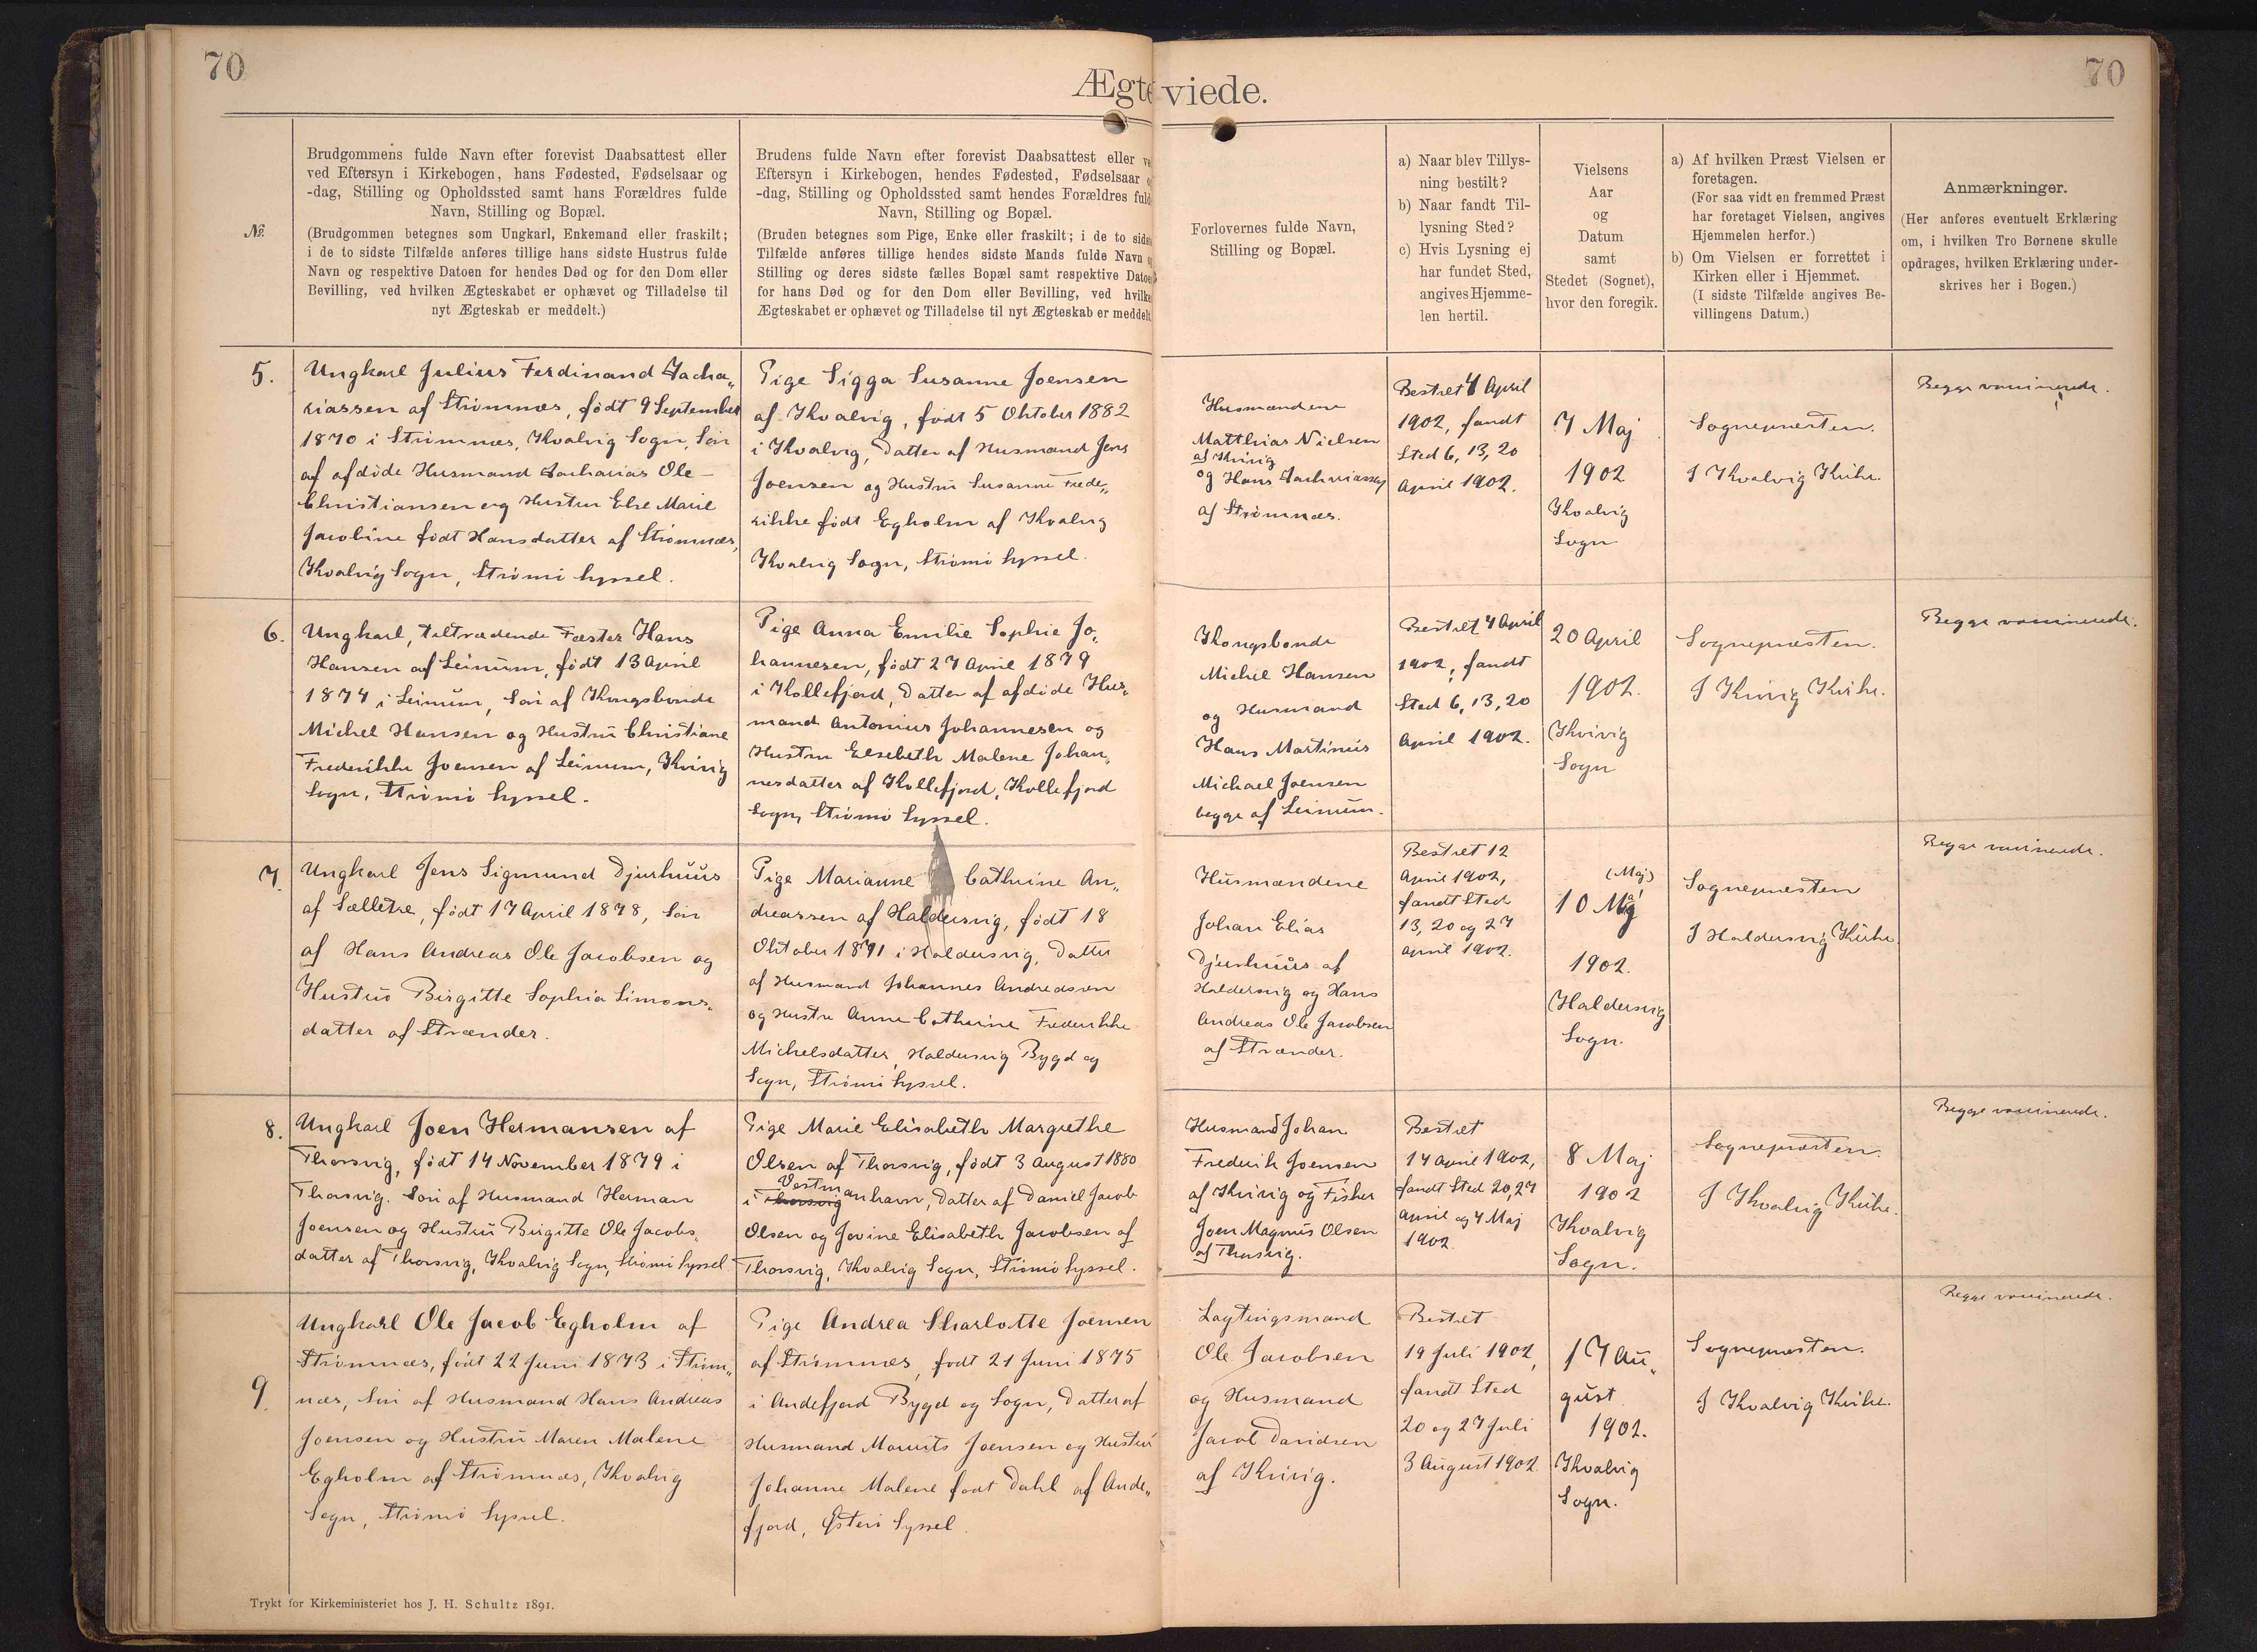 70
Ægteviede.
70
№
Brudgommens fulde Navn efter forevist Daabsattest eller
ved Eftersyn i Kirkebogen, hans Fødested, Fødselsaar og
-dag, Stilling og Opholdssted samt hans Forældres fulde
Navn, Stilling og Bopæl.
(Brudgommen betegnes som Ungkarl, Enkemand eller fraskilt;
i de to sidste Tilfælde anføres tillige hans sidste Hustrus fulde
Navn og respektive Datoen for hendes Død og for den Dom eller
Bevilling, ved hvilken Ægteskabet er ophævet og Tilladelse til
nyt Ægteskab er meddelt.)
Brudens fulde Navn efter forevist Daabsattest eller
Eftersyn i Kirkebogen, hendes Fødested, Fødselsaar
-dag, Stilling og Opholdssted samt hendes Forældres
Navn, Stilling og Bopæl.
(Bruden betegnes som Pige, Enke eller fraskilt; i de to
Tilfælde anføres tillige hendes sidste Mands fulde Navn
Stilling og deres sidste fælles Bopæl samt respektive
for hans Død og for den Dom eller Bevilling, ved
Ægteskabet er ophævet og Tilladelse til nyt Ægteskab er
Forlovernes fulde Navn,
Stilling og Bopæl.
a) Naar blev Tillys-
ning bestilt?
b) Naar fandt Til-
lysning Sted?
c) Hvis Lysning ej
har fundet Sted,
angives Hjemme-
len hertil.
Vielsens
Aar
og
Datum
samt
Stedet (Sognet),
hvor den foregik.
a) Af hvilken Præst Vielsen er
foretagen.
(For saa vidt en fremmed Præst
har foretaget Vielsen, angives
Hjemmelen herfor.)
b) Om Vielsen er forrettet i
Kirken eller i Hjemmet.
(I sidste Tilfælde angives Be-
villingens Datum.)
Anmærkninger.
(Her anføres eventuelt Erklæring
om, i hvilken Tro Børnene skulle
opdrages, hvilken Erklæring under-
skrives her i Bogen.)
5.
Ungkarl Julius Ferdinand Zacha„
riassen af Strömnæs, födt 9 September
1870 i Strömnæs, Kvalvig Sogn, Sön
af afdöde Husmand Zacharias Ole
Christiansen og Hustru Else Marie
Jacobine födt Hansdatter af Strömnæs,
Kvalvig Sogn, Strömö Syssel.
Pige Sigga Susanne Joensen
af Kvalvig, födt 5 Oktober 1882
i Kvalvig, Datter af Husmand Jens
Joensen og Hustru Susanne Frede„
rikke födt Egholm af Kvalvig
Kvalvig Sogn, Strömö Syssel.
Husmændene
Matthias Nielsen
af Kvivig
og Hans Zachariassen
af Strömnæs.
Bestret 4 April
1902, fandt
Sted 6, 13, 20
April 1902.
7 Maj
1902
Kvalvig
Sogn
Sognepræsten.
I Kvalvig Kirke.
Begge vaccinerede.
6.
Ungkarl, tiltrædende Fæster Hans
Hansen af Leinum, födt 13 April
1874 i Leinum, Sön af Kongsbonde
Michel Hansen og Hustru Christiane
Frederikke Joensen af Leinum, Kvivig
Sogn, Strömö Syssel.
Pige Anna Emilie Sophie Jo„
hannesen, födt 27 April 1879
i Kollefjord, Datter af afdöde Hus„
mand Antonius Johannesen og
Hustru Elsebeth Malene Johan„
nesdatter af Kollefjord, Kollefjord
Sogn, Strömö Syssel.
Kongsbonde
Michel Hansen
og Husmand
Hans Martinus
Michael Joensen
begge af Leinum.
Bestret 4 April
1902, fandt
Sted 6, 13, 20
April 1902.
20 April
1902.
Kvivig
Sogn
Sognepræsten.
I Kvivig Kirke.
Begge vaccinerede.
7.
Ungkarl Jens Sigmund Djurhuus
af Sælletræ, födt 17 April 1878, Sön
af Hans Andreas Ole Jacobsen og
Hustru Birgitte Sophia Simons„
datter af Strænder.
Pige Marianne Cathrine An„
dreassen af Haldersvig, födt 18
Oktober 1871 i Haldersvig, Datter
af Husmand Johannes Andreasen
og Hustru Anne Cathrine Frederikke
Michelsdatter, Haldersvig Bygd og
Sogn, Strömö Syssel.
Husmændene
Johan Elias
Djurhuus af
Haldersvig og Hans
Andreas Ole Jacobsen
af Strænder.
Bestret 12
April 1902,
fandt Sted
13, 20 og 27
April 1902.
(Maj)
10 Maj
1902.
Haldersvig
Sogn.
Sognepræsten
I Haldersvig Kirke
Begge vaccinerede.
8.
Ungkarl Joen Hermansen af
Thorsvig, födt 14 November 1879 i
Thorsvig. Sön af Husmand Herman
Joensen og Hustru Birgitte Ole Jacobs„
datter af Thorsvig, Kvalvig Sogn, Strömö Syssel
Pige Marie Elisabeth Margrethe
Olsen af Thorsvig, födt 3 August 1880
i Thorsvig Vestmanhavn, Datter af Daniel Jacob
Olsen og Jovine Elisabeth Jacobsen af
Thorsvig, Kvalvig Sogn, Strömö Syssel.
Husmand Johan
Frederik Joensen
af Kvivig og Fisker
Joen Magnus Olsen
af Thorsvig.
Bestret
14 April 1902,
fandt Sted 20, 27
April og 4 Maj
1902.
8 Maj
1902
Kvalvig
Sogn.
Sognepræsten.
I Kvalvig Kirke.
Begge vaccinerede.
9.
Ungkarl Ole Jacob Egholm af
Strömnæs, födt 22 Juni 1873 i Ström„
næs, Sön af Husmand Hans Andreas
Joensen og Hustru Maren Malene
Egholm af Strömnæs, Kvalvig
Sogn, Strömö Syssel.
Pige Andrea Sharlotte Joensen
af Strömnæs, födt 21 Juni 1875
i Andefjord Bygd og Sogn, Datter af
Husmand Mourits Joensen og Hustru
Johanne Malene födt Dahl af Ande„
fjord, Österö Syssel.
Lagtingsmand
Ole Jacobsen
og Husmand
Jacob Davidsen
af Kvivig.
Bestret
19 Juli 1902,
fandt Sted
20 og 27 Juli
3 August 1902.
17 Au„
gust
1902.
Kvalvig
Sogn.
Sognepræsten.
I Kvalvig Kirke.
Begge vaccinerede.
Trykt for Kirkeministeriet hos J. H. Schultz 1891.